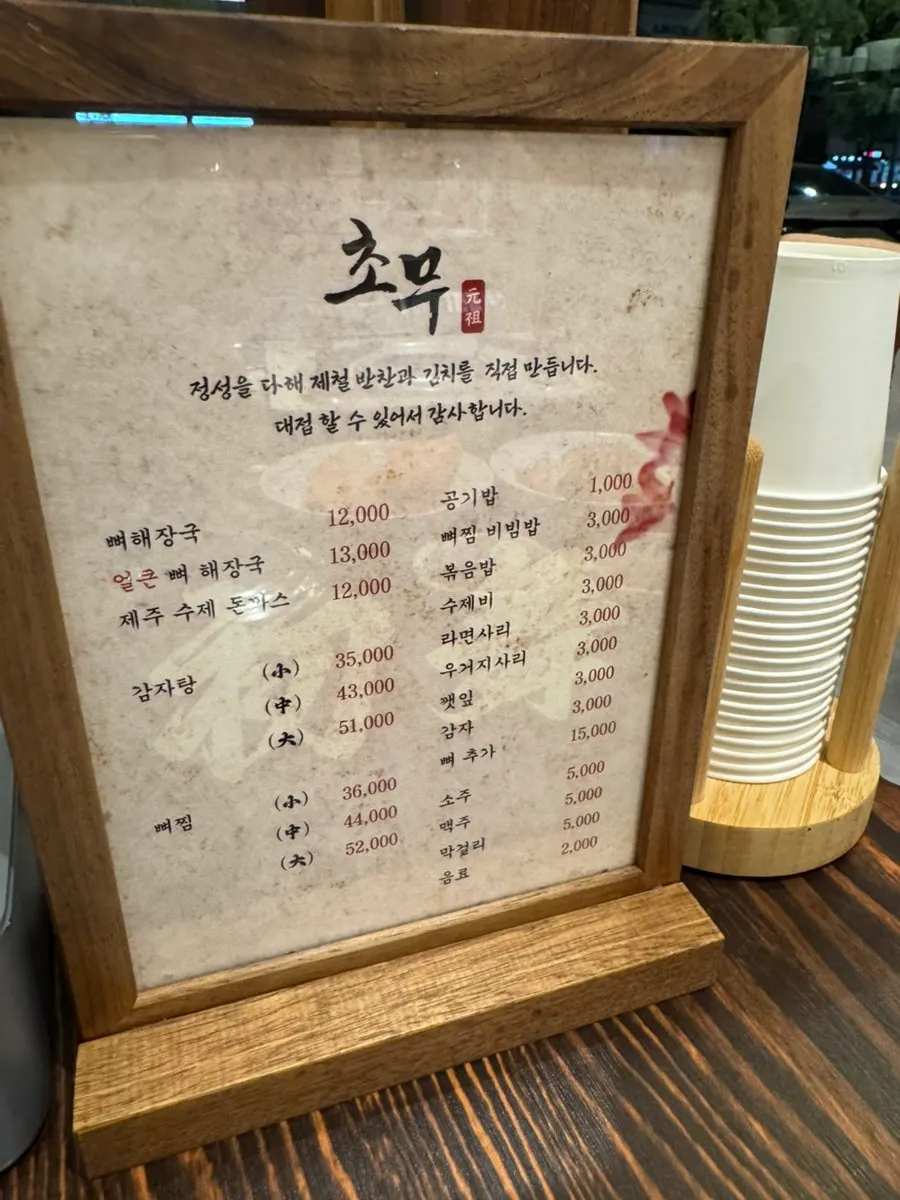 초무
元祖
정성을 다해 제철 반찬과 김치를 직접 만듭니다.
대접 할 수 있어서 감사합니다.
뼈해장국 12,000
얼큰 뼈 해장국 13,000
제주 수제 돈까스 12,000
감자탕 (小) 35,000
(中) 43,000
(大) 51,000
뼈찜 (小) 36,000
(中) 44,000
(大) 52,000
공기밥 1,000
뼈찜 비빔밥 3,000
볶음밥 3,000
수제비 3,000
라면사리 3,000
우거지사리 3,000
깻잎 3,000
감자 3,000
뼈 추가 15,000
소주 5,000
맥주 5,000
막걸리 5,000
음료 2,000